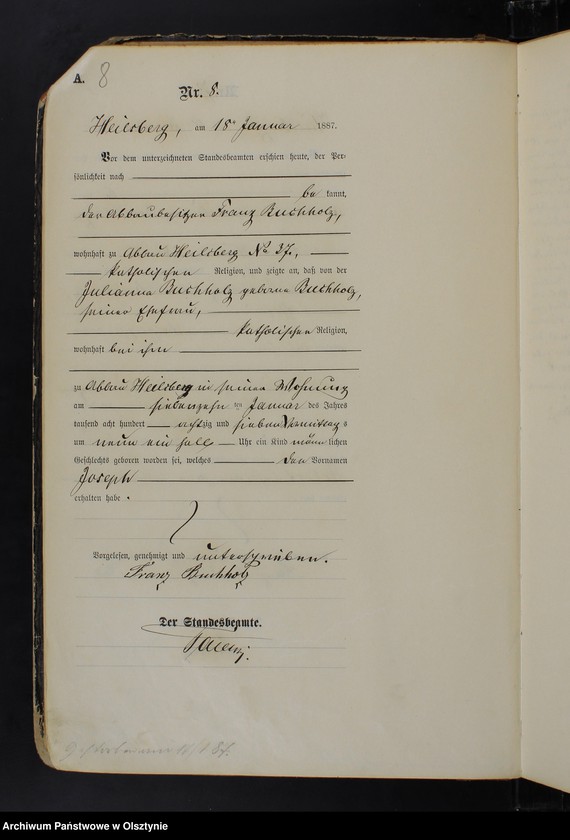 A. 8
Nr. 8.
Heilsberg, am 18ten Januar 1887.
Vor dem unterzeichneten Standesbeamten erschien heute, der Per-
sönlichkeit nach
be kannt,
der Abbaubesitzer Franz Buchholz,
wohnhaft zu Abbau Heilsberg No 37,
katholischen Religion, und zeigte an, daß von der
Julianna Buchholz geborne Buchholz,
seiner Ehefrau,
katholischen Religion,
wohnhaft bei ihm
zu Abbau Heilsberg in seiner Wohnung
am siebenzehn ten Januar des Jahres
tausend acht hundert achtzig und sieben Vormittags
um neun ein halb Uhr ein Kind männ lichen
Geschlechts geboren worden sei, welches den Vornamen
Joseph
erhalten habe.
Vorgelesen, genehmigt und unterschrieben.
Franz Buchholz
Der Standesbeamte.
Archiwum Państwowe w Olsztynie